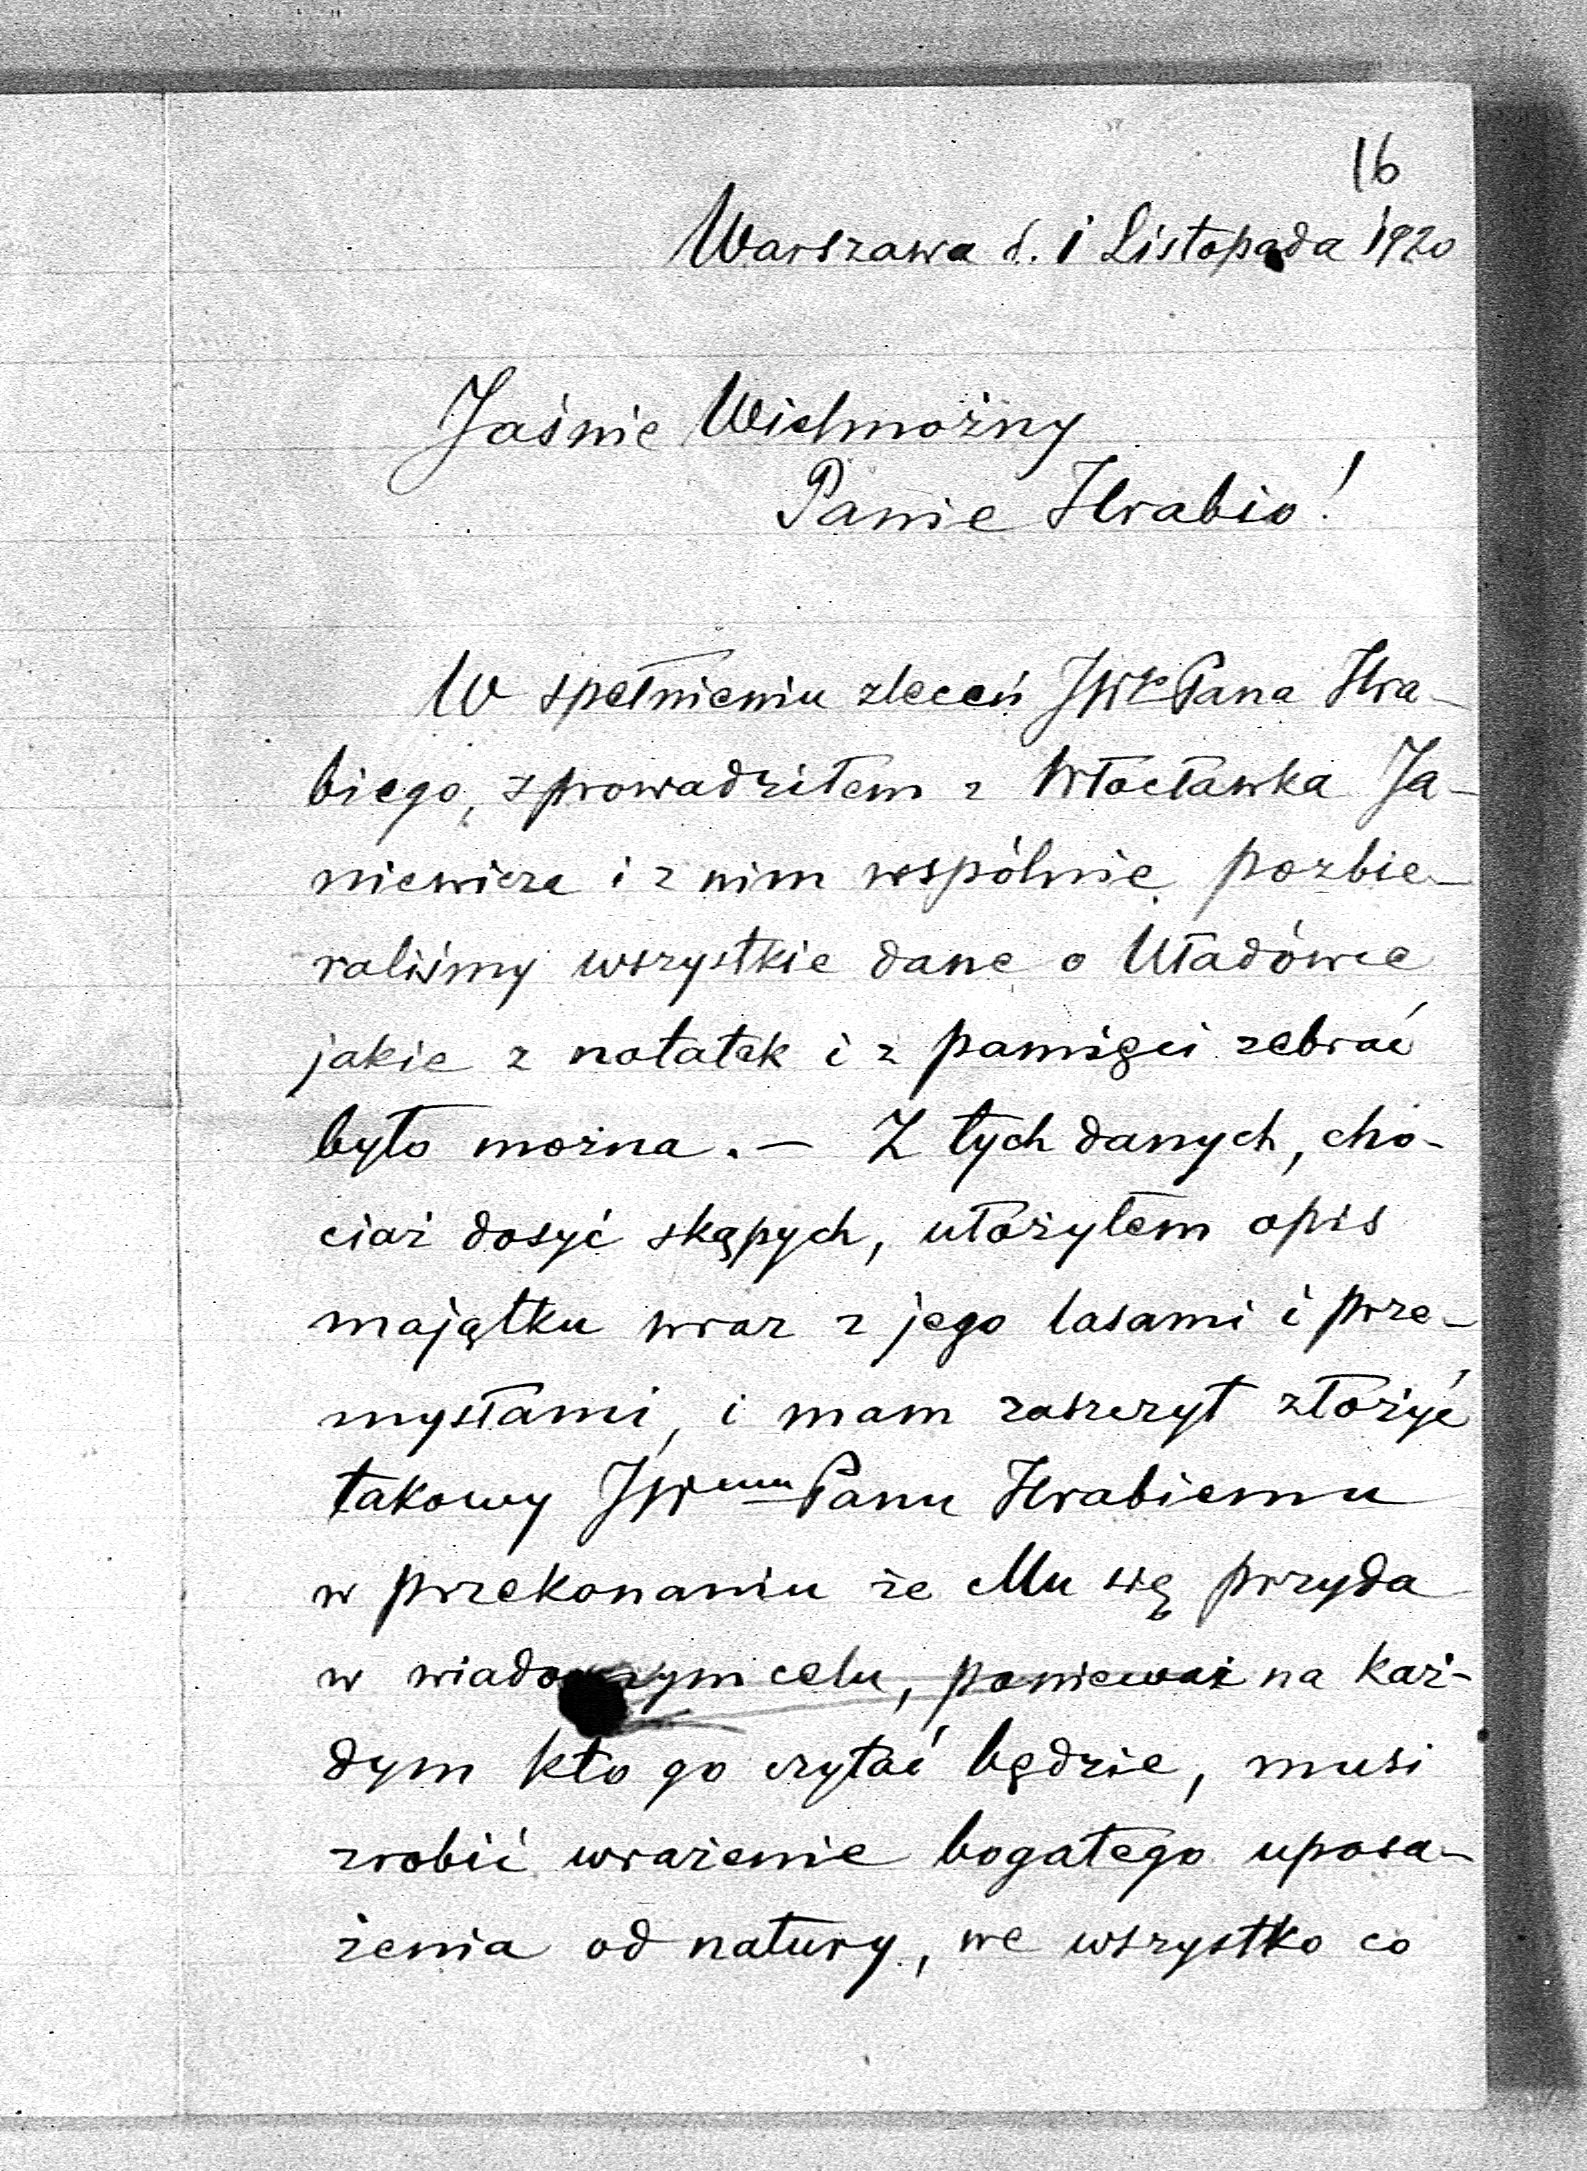 16
Warszawa d. 1 Listopada 1920
Jaśnie Wielmożny
Panie Hrabio!
W spełnieniu zleceń JWgo Pana Hra-
biego, sprowadziłem z Włocławka Ja-
niewicza i z nim wspólnie pozbie-
raliśmy wszystkie dane o Uładówce
jakie z notatek i z pamięci zebrać
było można. — Z tych danych, cho-
ciaż dosyć skąpych, ułożyłem opis
majątku wraz z jego lasami i prze-
mysłami, i mam zaszczyt złożyć
takowy JWemu Panu Hrabiemu
w przekonaniu że Mu się przyda
w wiadomym celu, ponieważ na każ-
dym kto go czytać będzie, musi
zrobić wrażenie bogatego uposa-
żenia od natury, we wszystko co